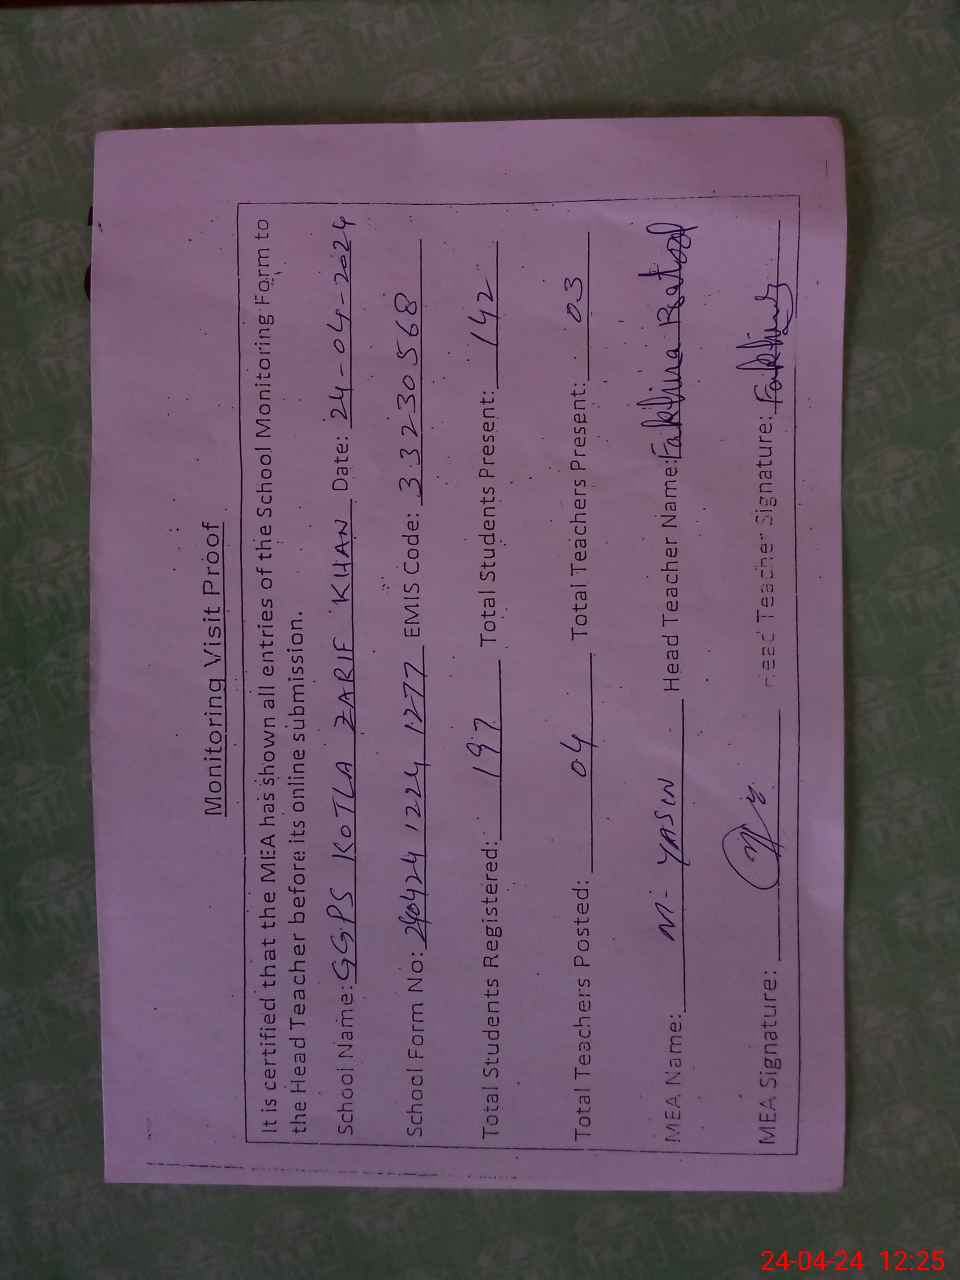 Monitoring Visit Proof
It is certified that the MEA has shown all entries of the School Monitoring Form to
the Head Teacher before its online submission.
School Name: GGPS KOTLA ZARIF KHAN Date: 24-04-2024
School Form No: 240424 1224 1277 EMIS Code: 33230568
Total Students Registered: 197 Total Students Present: 142
Total Teachers Posted: 04 Total Teachers Present: 03
MEA Name: M. YASIN Head Teacher Name: Fakhira Batool
MEA Signature: Head Teacher Signature: Fakhira
24-04-24 12:25